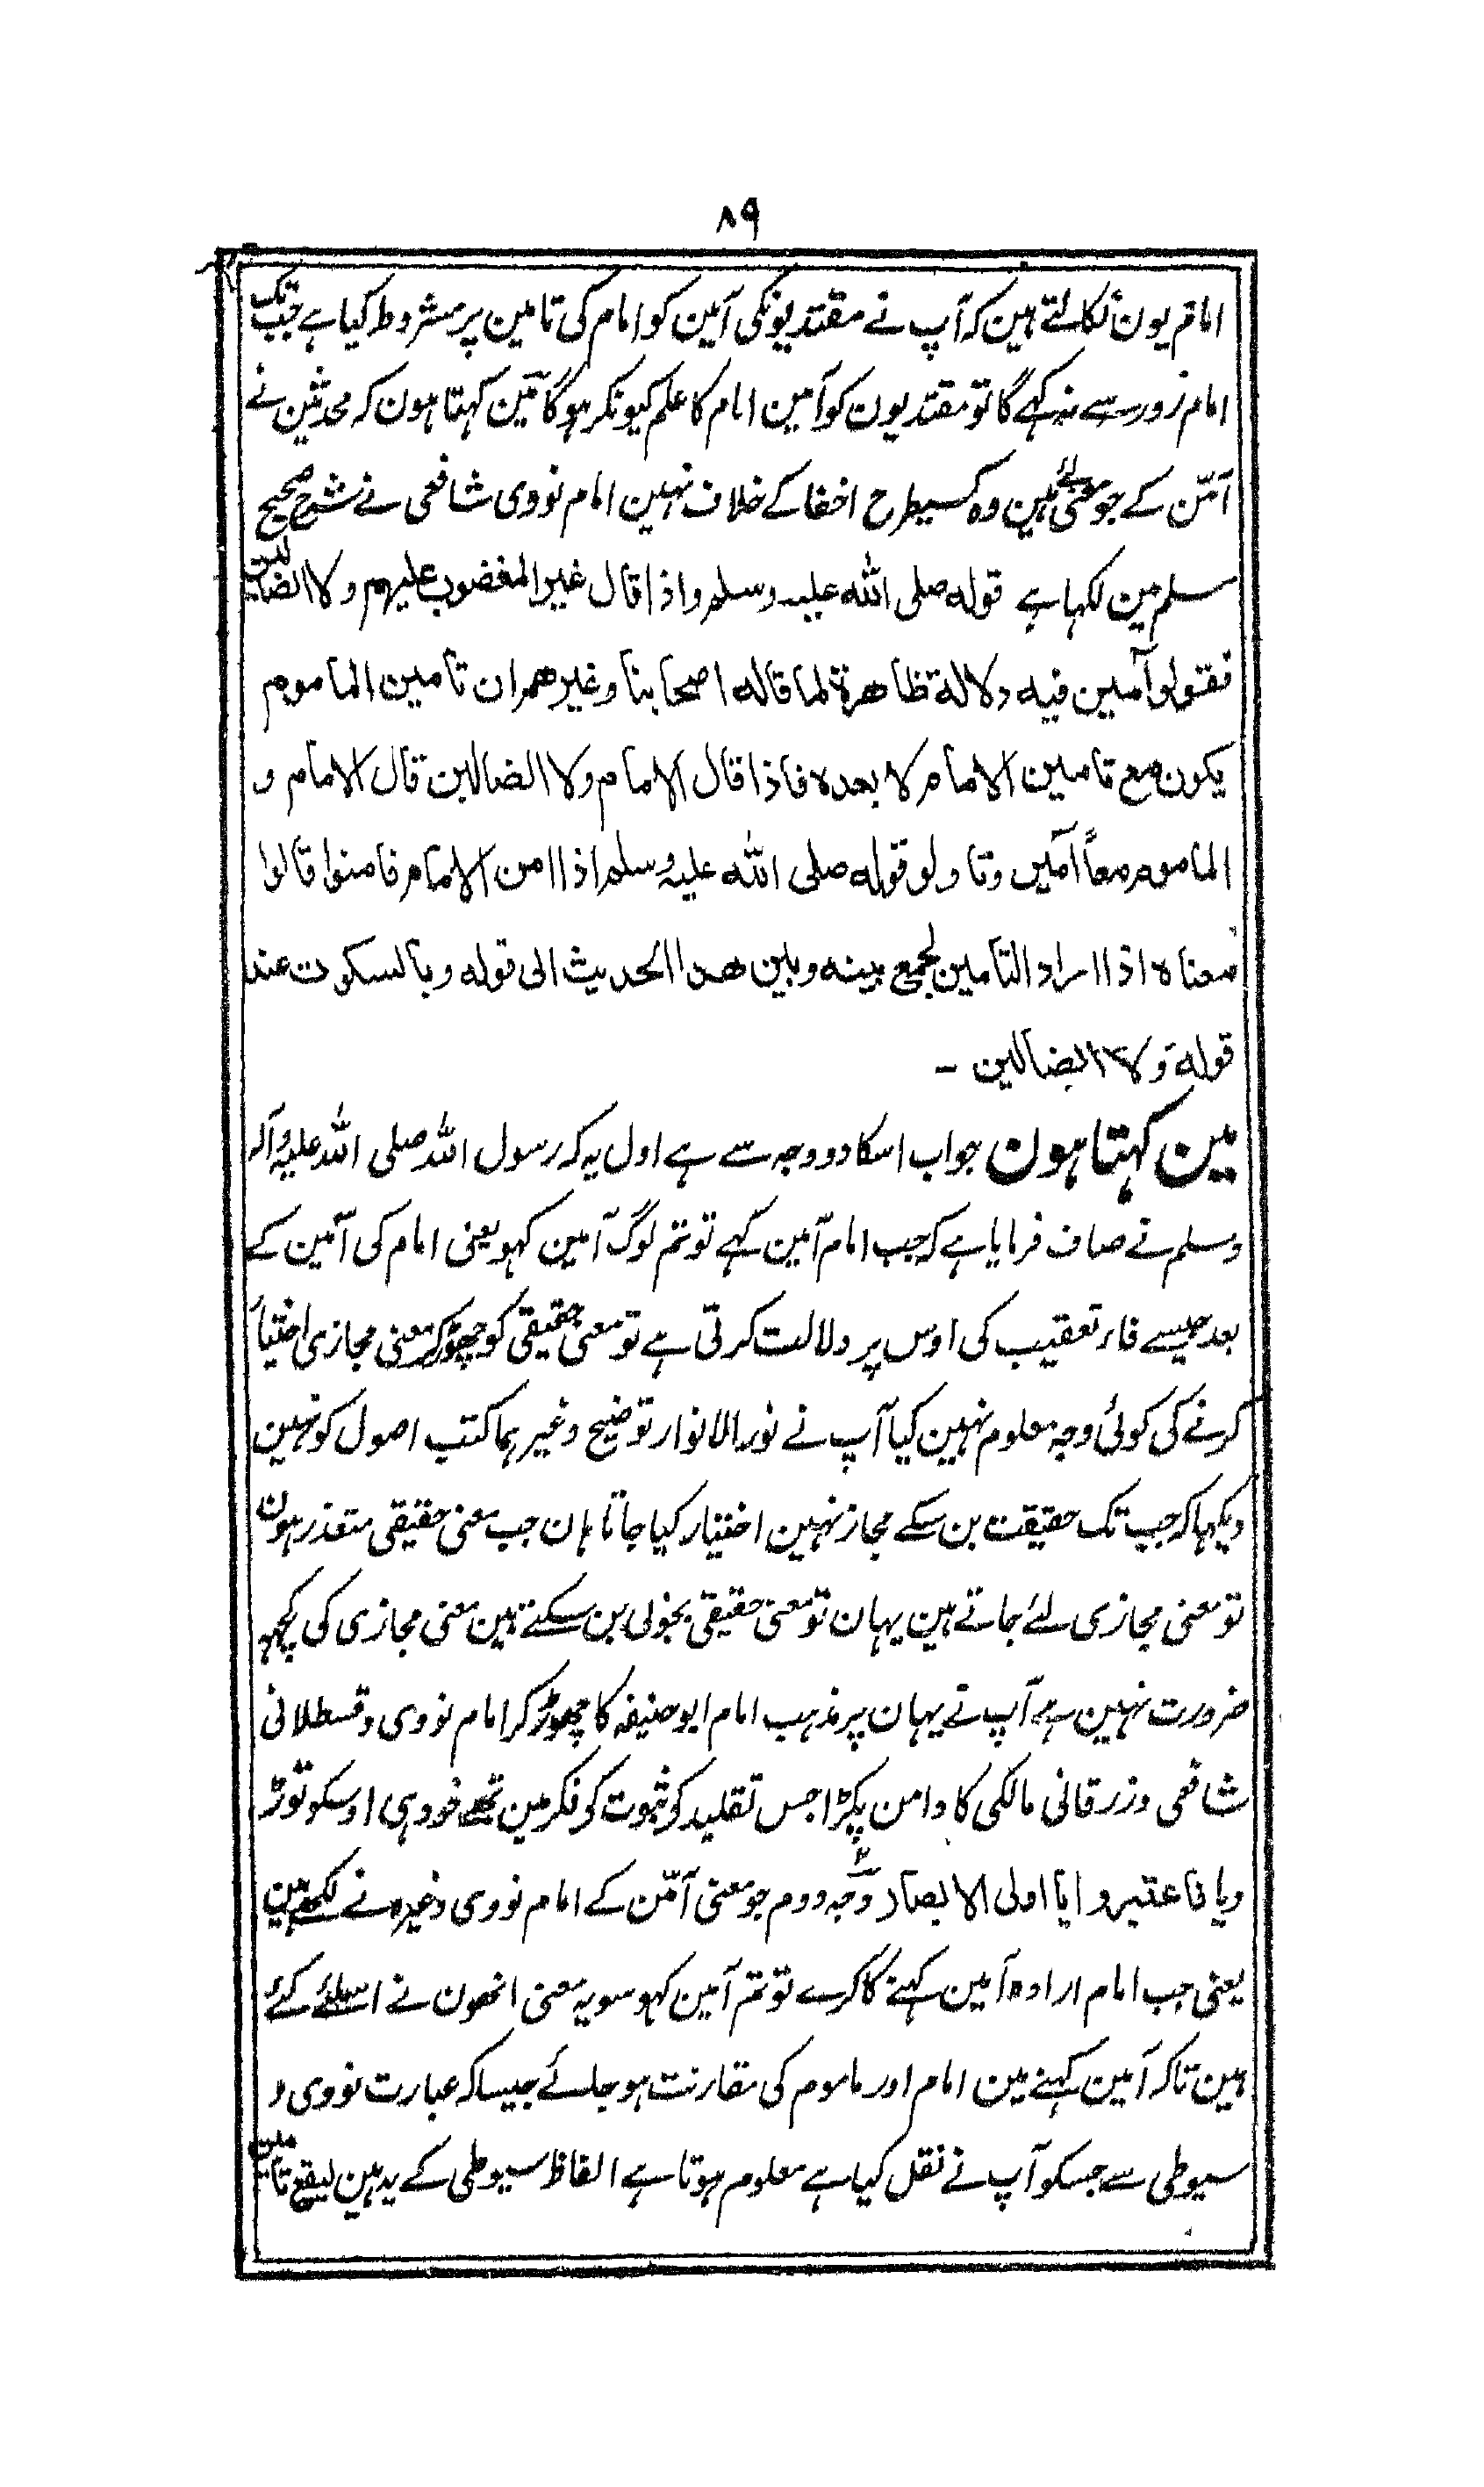 ۸۹
اماقریون نکالتے ہین کہ آپ نے مقتدیونکی آمین کو امام کی تامین پر مشروط کیا ہے جبتک
امام زور سے نہ کہے گا تو مقتدیون کو آمین امام کا علم کیونکر ہوگا مین کہتا ہون کہ محدثین نے
آمّن کے جو معنی لئے ہین وہ کسیطرح اخفا کے خلاف نہین امام نووی شافعی نے شرح صحیح
مسلم مین لکہا ہے قوله صلی الله علیه وسلم واذا قال غیر المغضوب علیهم ولا الضالین
فقولوا آمین فیه دلالة ظاهرة لما قاله اصحابنا وغیرهم ان تامین الماموم
یکون مع تامین الامام لا بعده فاذا قال الامام ولا الضالین قال الامام و
الماموم معاً آمین وتاولو قوله صلی الله علیه وسلم اذا امن الامام فامنوا قالوا
معناه اذا اراد التامین لجمع بینه وبین هذا الحدیث الی قوله وبالسکوت عند
قوله ولا الضالین ۔
مین کہتا ہون جواب اسکا دو وجہ سے ہے اول یہ کہ رسول اللہ صلی اللہ علیہ وآلہ
وسلم نے صاف فرمایا ہے کہ جب امام آمین کہے تو تم لوگ آمین کہو یعنی امام کی آمین کے
بعد جیسے فاء تعقیب کی اوس پر دلالت کرتی ہے تو معنی حقیقی کو چھوڑکر معنی مجازی اختیار
کرنے کی کوئی وجہ معلوم نہین کیا آپ نے نور الانوار توضیح وغیرہما کتب اصول کو نہین
دیکہا کہ جب تک حقیقت بن سکے مجاز نہین اختیار کیا جاتا ہان جب معنی حقیقی متعذر ہون
تو معنی مجازی لئے جاتے ہین یہان تو معنی حقیقی بخوبی بن سکتے ہین معنی مجازی کی کچھ
ضرورت نہین ہے آپ نے یہان پر مذہب امام ابوحنیفہ کا چھوڑ کر امام نووی وقسطلانی
شافعی وزرقانی مالکی کا دامن پکڑا جس تقلید کو ثبوت کو فکر مین تھے خود ہی اوسکو توڑ
دیا فاعتبروا یا اولی الابصار وجہ دوم جو معنی آمّن کے امام نووی وغیرہ نے لکھے ہین
یعنی جب امام ارادہ آمین کہنے کا کرے تو تم آمین کہو سو یہ معنی انھون نے اسلئے کئے
ہین تاکہ آمین کہنے مین امام اور ماموم کی مقارنت ہو جائے جیسا کہ عبارت نووی و
سیوطی سے جسکو آپ نے نقل کیا ہے معلوم ہوتا ہے الفاظ سیوطی کے یہ ہین لیقع تامین